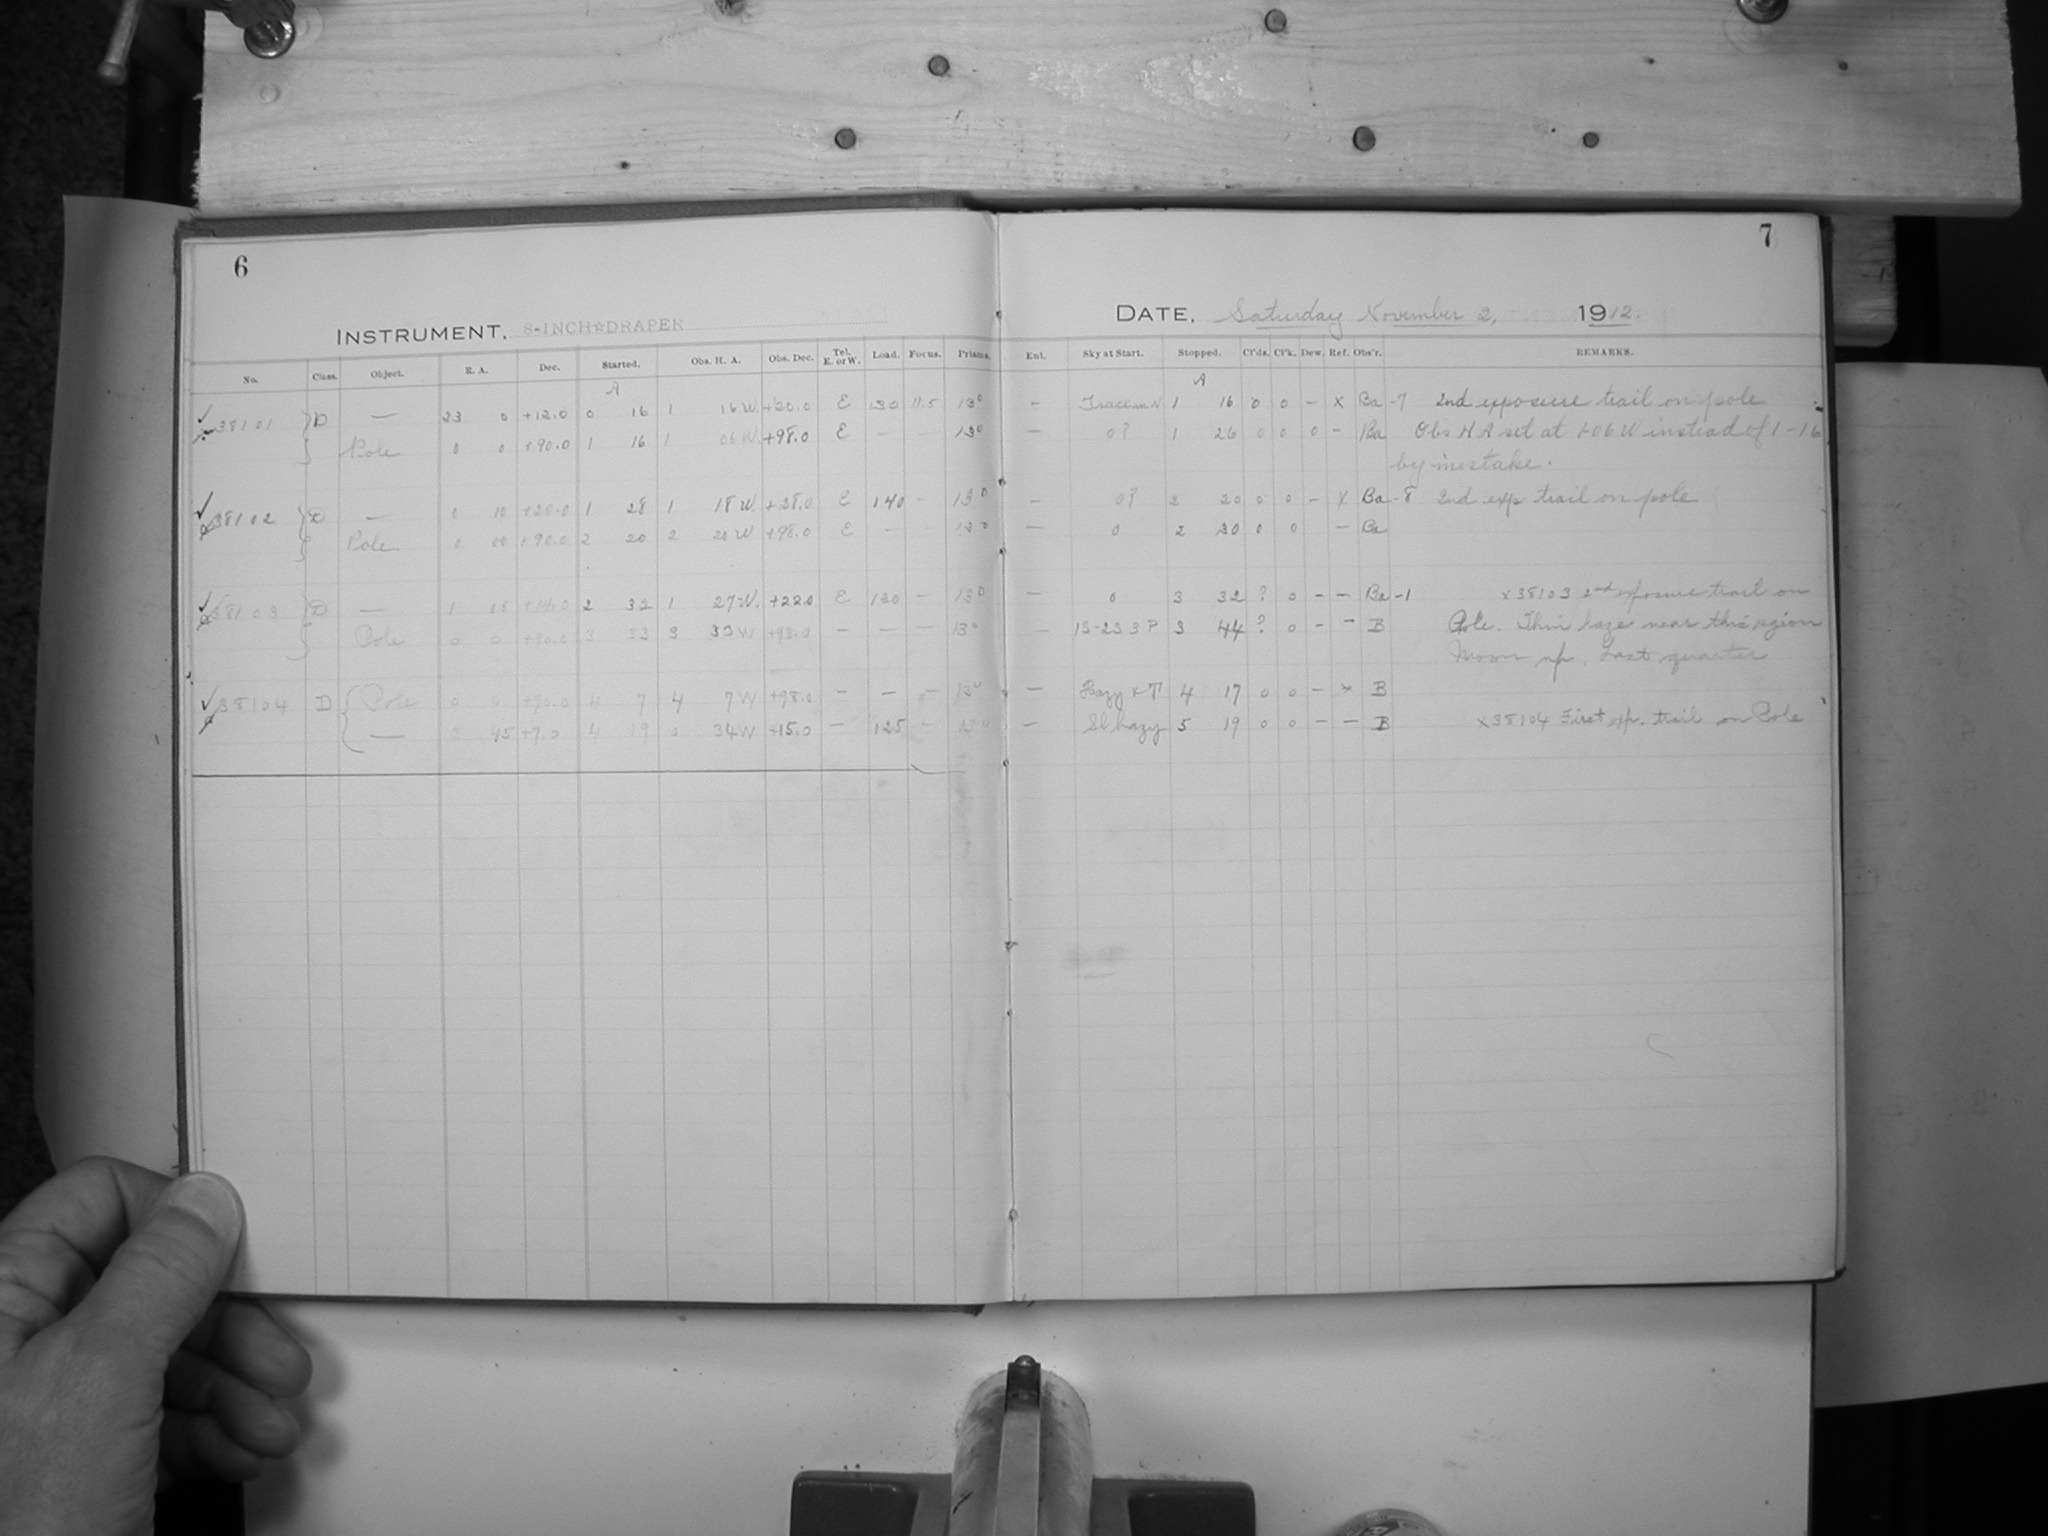 6
INSTRUMENT, 8-INCH☆DRAPER
No. Class. Object. R. A. Dec. Started. Obs. H. A. Obs. Dec. Tel. E. or W. Load. Focus. Prisms.
A
38101 D — 23 0 +12.0 0 16 1 16 W +20.0 E 130 11.5 13°
Pole 0 0 +90.0 1 16 1 06 W +98.0 E — — 13°
38102 D — 0 10 +20.0 1 28 1 18 W +28.0 E 140 — 13°
Pole 0 00 +90.0 2 20 2 20 W +98.0 E — — 13°
38103 D — 1 05 +14.0 2 32 1 27 W. +22.0 E 130 — 13°
Pole 0 0 +90.0 3 33 3 33 W +98.0 — — — 13°
38104 D Pole 0 0 +90.0 4 7 4 7 W +98.0 — — — 13°
— 3 45 +7.0 4 19 0 34 W +15.0 — 125 — 13°
7
DATE, Saturday November 2, 1912.
Enl. Sky at Start. Stopped. Cl'ds. Cl'k. Dew. Ref. Obs'r. REMARKS.
A
— 1 16 0 0 — x Ba -7 2nd exposure trail on pole
— 0? 1 26 0 0 0 — Ba Obs H A set at 1-06 W instead of 1-16
by mistake.
— 0? 2 20 0 0 — x Ba -8 2nd exp trail on pole
— 0 2 30 0 0 — Ba
— 0 3 32 ? 0 — — Ba -1 x38103 2nd exposure trail on
— 13-23 3 P 3 44 ? 0 — — B Pole. Thin haze near this region
Moon up. Last quarter
— Hazy x T 4 17 0 0 — x B
— Sl hazy 5 19 0 0 — — B x38104 First exp. trail on Pole